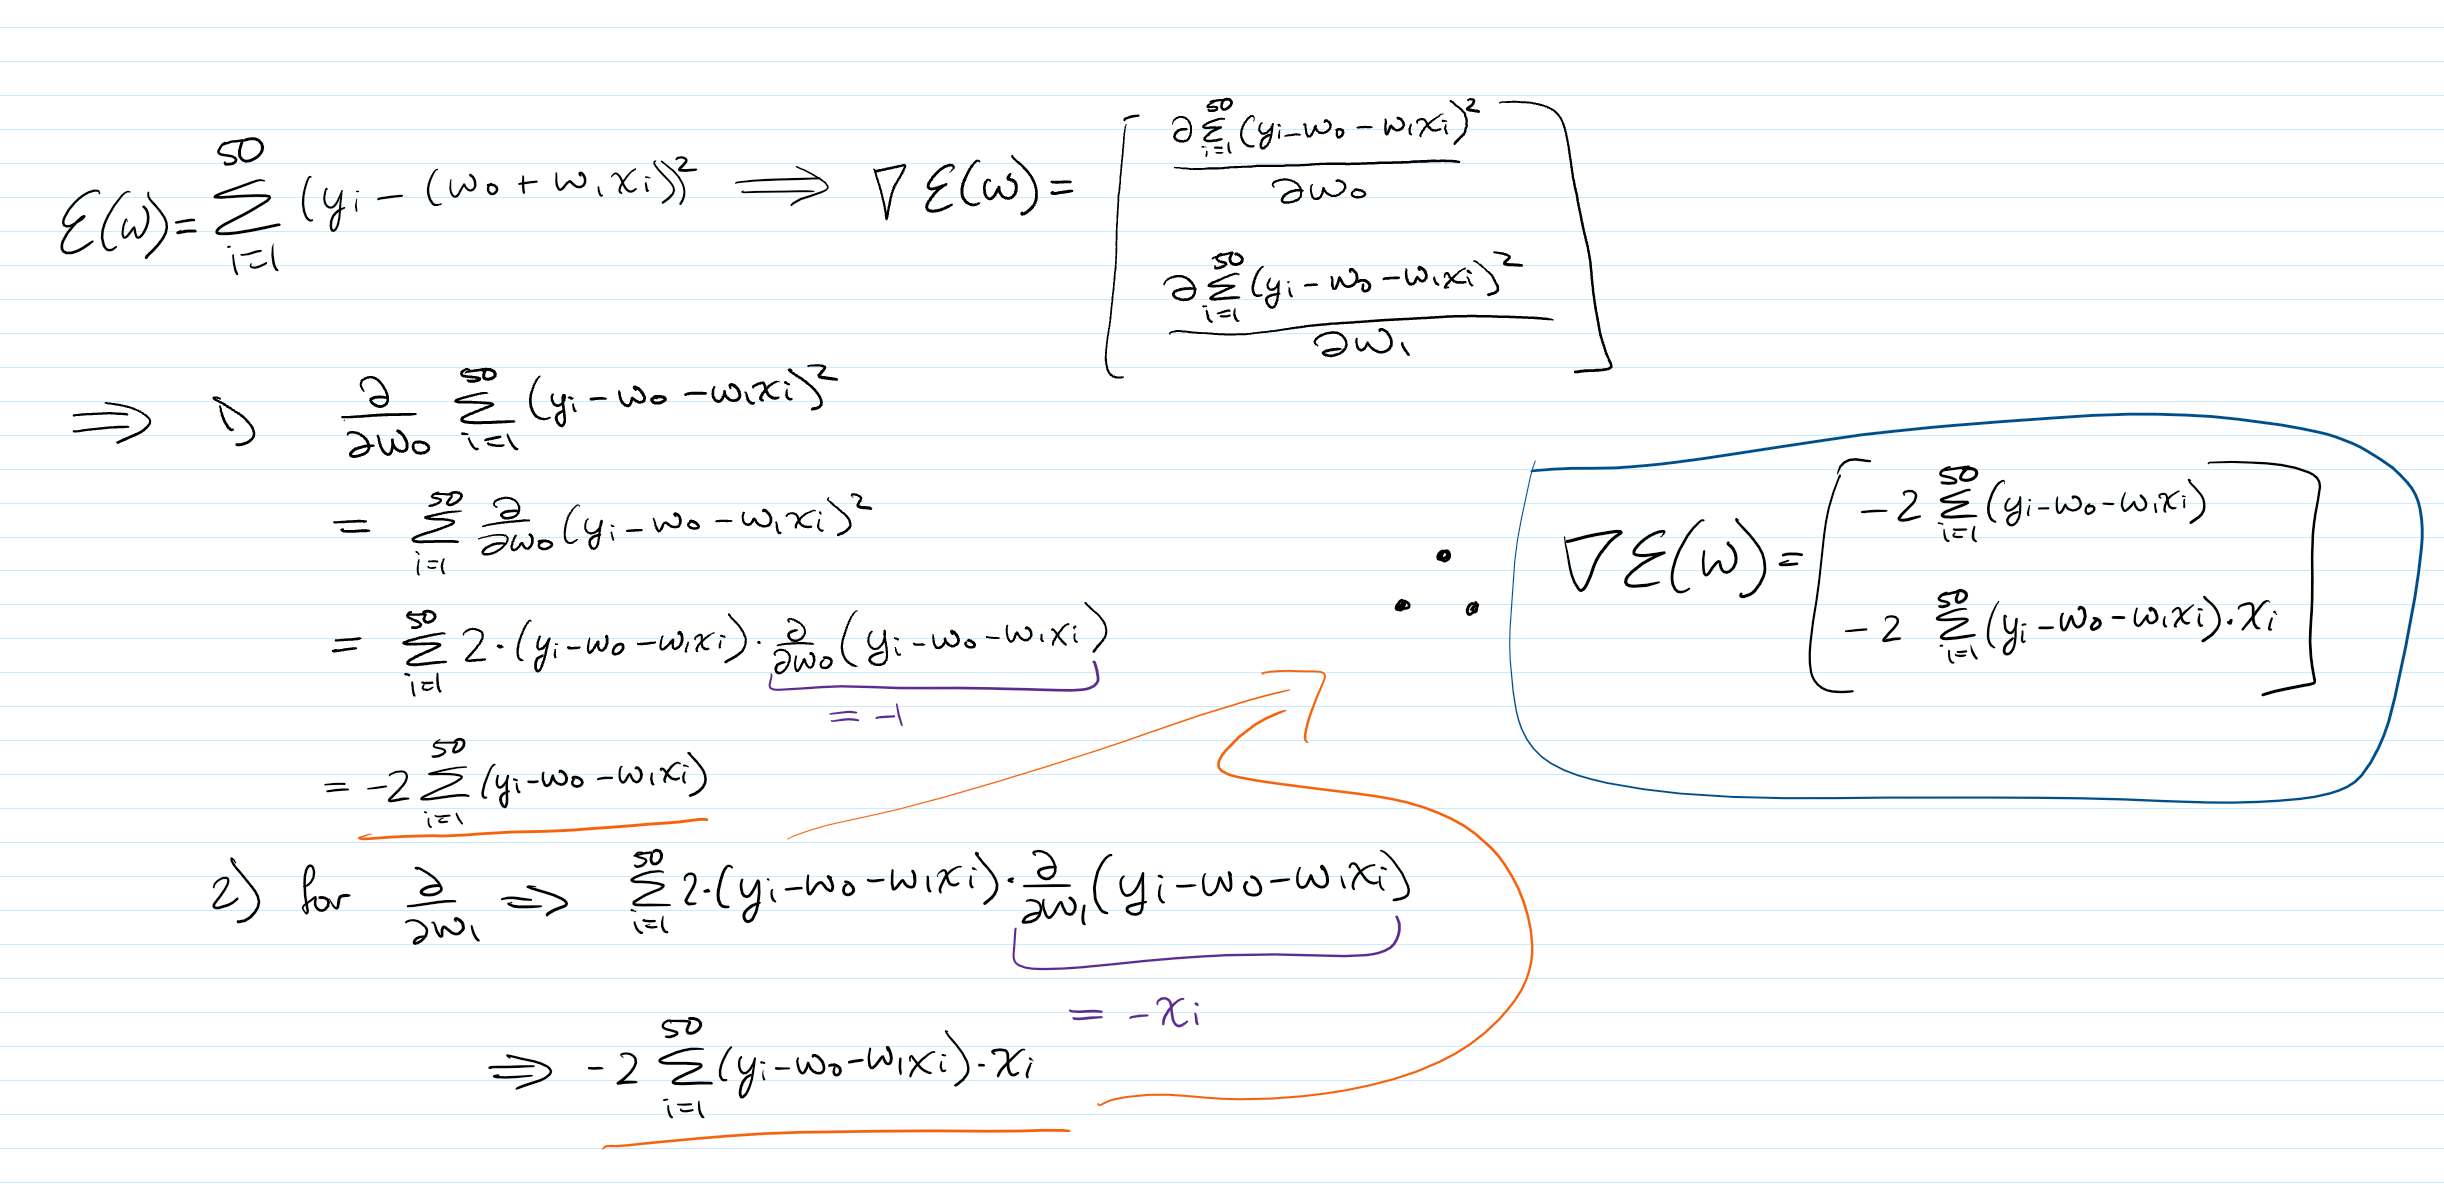 ℰ(w) = ∑_{i=1}^{50} (y_i − (w_0 + w_1 x_i))² ⟹ ∇ℰ(w) = [ ∂∑_{i=1}^{50}(y_i − w_0 − w_1 x_i)² / ∂w_0
∂∑_{i=1}^{50}(y_i − w_0 − w_1 x_i)² / ∂w_1 ]
⟹ 1) ∂/∂w_0 ∑_{i=1}^{50} (y_i − w_0 − w_1 x_i)²
= ∑_{i=1}^{50} ∂/∂w_0 (y_i − w_0 − w_1 x_i)²
= ∑_{i=1}^{50} 2·(y_i − w_0 − w_1 x_i)· ∂/∂w_0 (y_i − w_0 − w_1 x_i)
= −1
= −2 ∑_{i=1}^{50} (y_i − w_0 − w_1 x_i)
2) for ∂/∂w_1 ⟹ ∑_{i=1}^{50} 2·(y_i − w_0 − w_1 x_i)· ∂/∂w_1 (y_i − w_0 − w_1 x_i)
= −x_i
⟹ −2 ∑_{i=1}^{50} (y_i − w_0 − w_1 x_i)·x_i
∴ ∇ℰ(w) = [ −2 ∑_{i=1}^{50} (y_i − w_0 − w_1 x_i)
−2 ∑_{i=1}^{50} (y_i − w_0 − w_1 x_i)·x_i ]